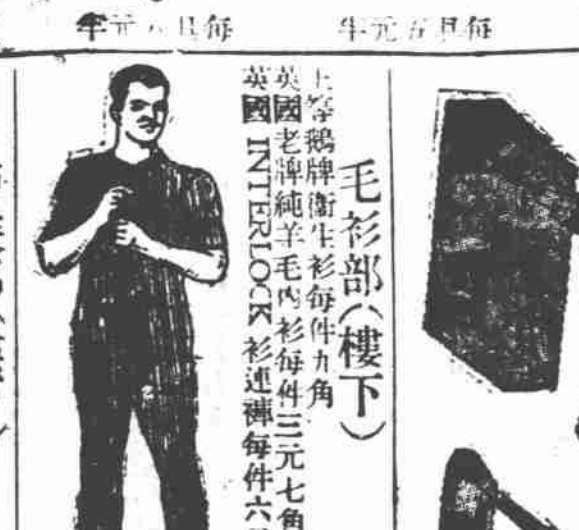 每具八元半
每具五元半
毛衫部(樓下)
上等鵝牌衞生衫每件九角
英國老牌純羊毛內衫每件三元七角
英國 INTERLOCK 衫連褲每件六